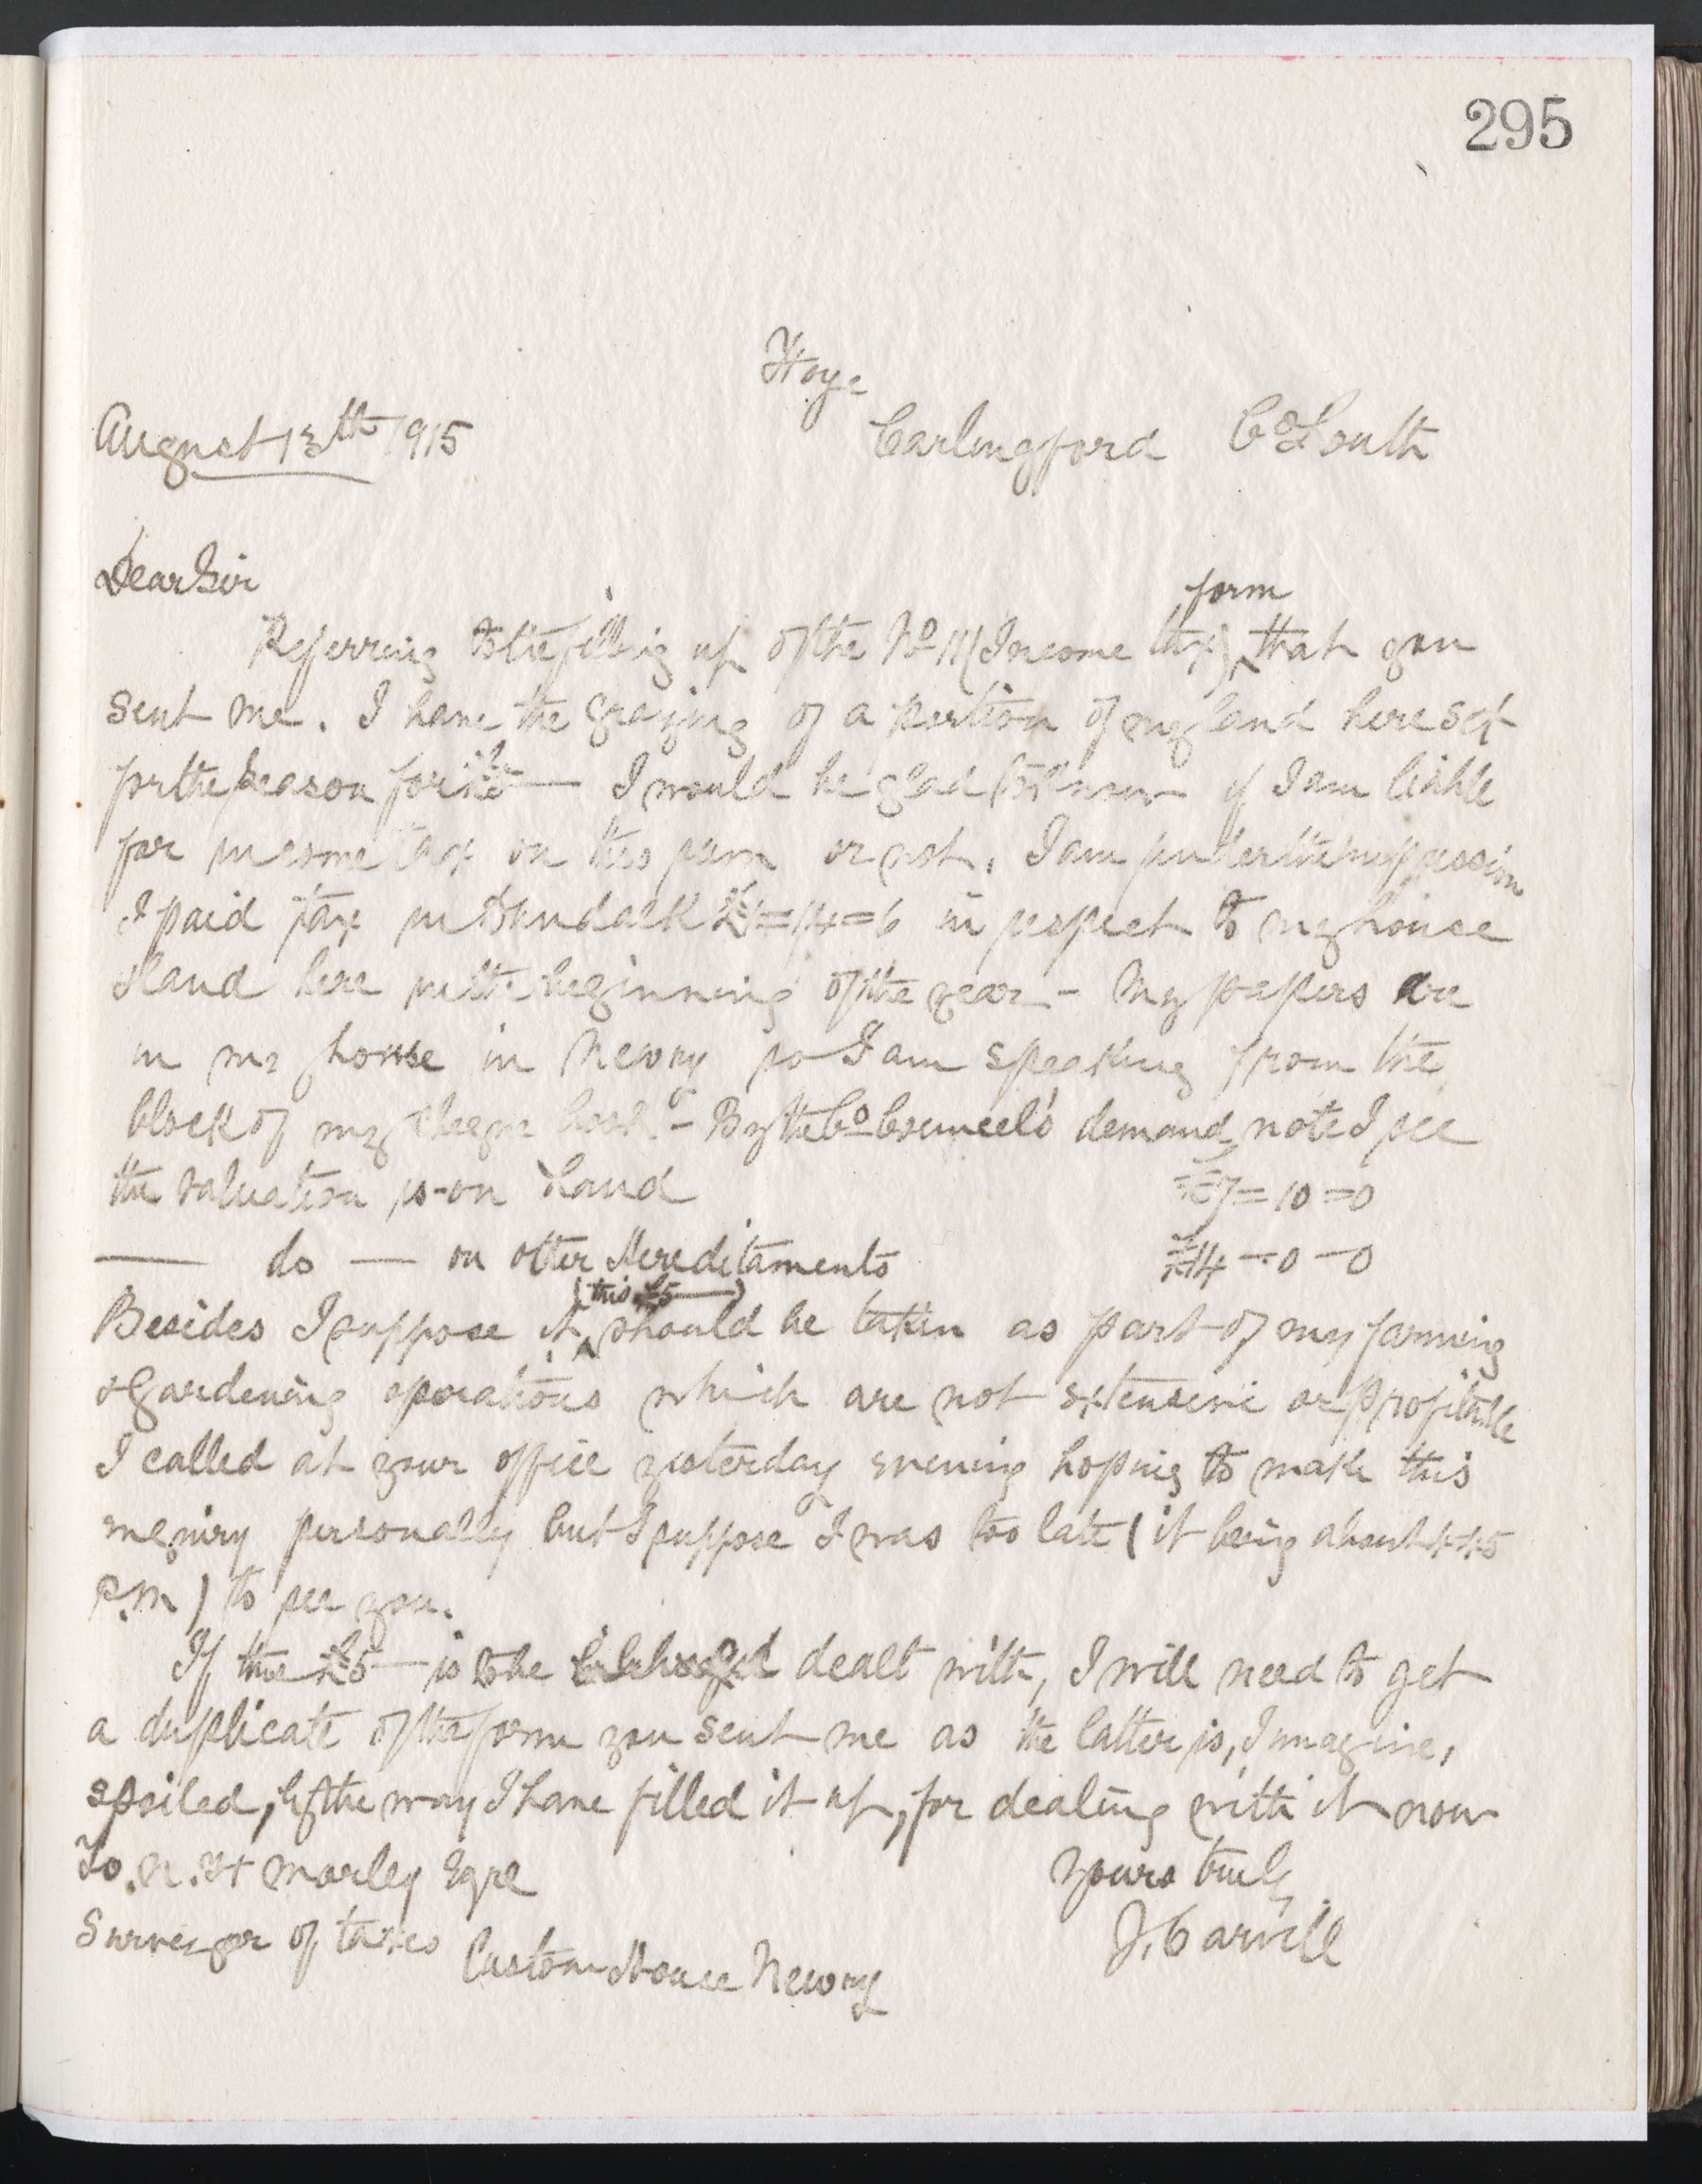 295
Hoye
August 13th 1915 Carlingford Co Louth
Dear Sir
form
Referring to the filling up of the No 11 (Income tax) that you
sent me. I have the grazing of a portion of my land here set
for the season for £5 — I would be glad to know if I am liable
for income tax on this sum or not. I am under the impression
I paid tax in Dundalk = 14 = 6 in respect to my house
& land here in the beginning of the year - My papers are
in my house in Newry so I am speaking from the
block of my cheque book - By the Co Councel's demand note I see
the valuation is on Land £7 = 10 = 0
— do — on other Hereditaments £14 - 0 - 0
(this £5 —)
Besides I suppose it should be taken as part of my farming
& gardening operations which are not extensive or profitable
I called at your office yesterday evening hoping to make this
enquiry personally but I suppose I was too late (it being about 4 45
P.M) to see you.
If the £5 — is to be dealt with, I will need to get
a duplicate of the form you sent me as the latter is, I imagine,
spoiled, by the way I have filled it up, for dealing with it now
To. N. H Marley Eqre Yours truly
Surveyor of taxes Custom House Newry J. Carvill